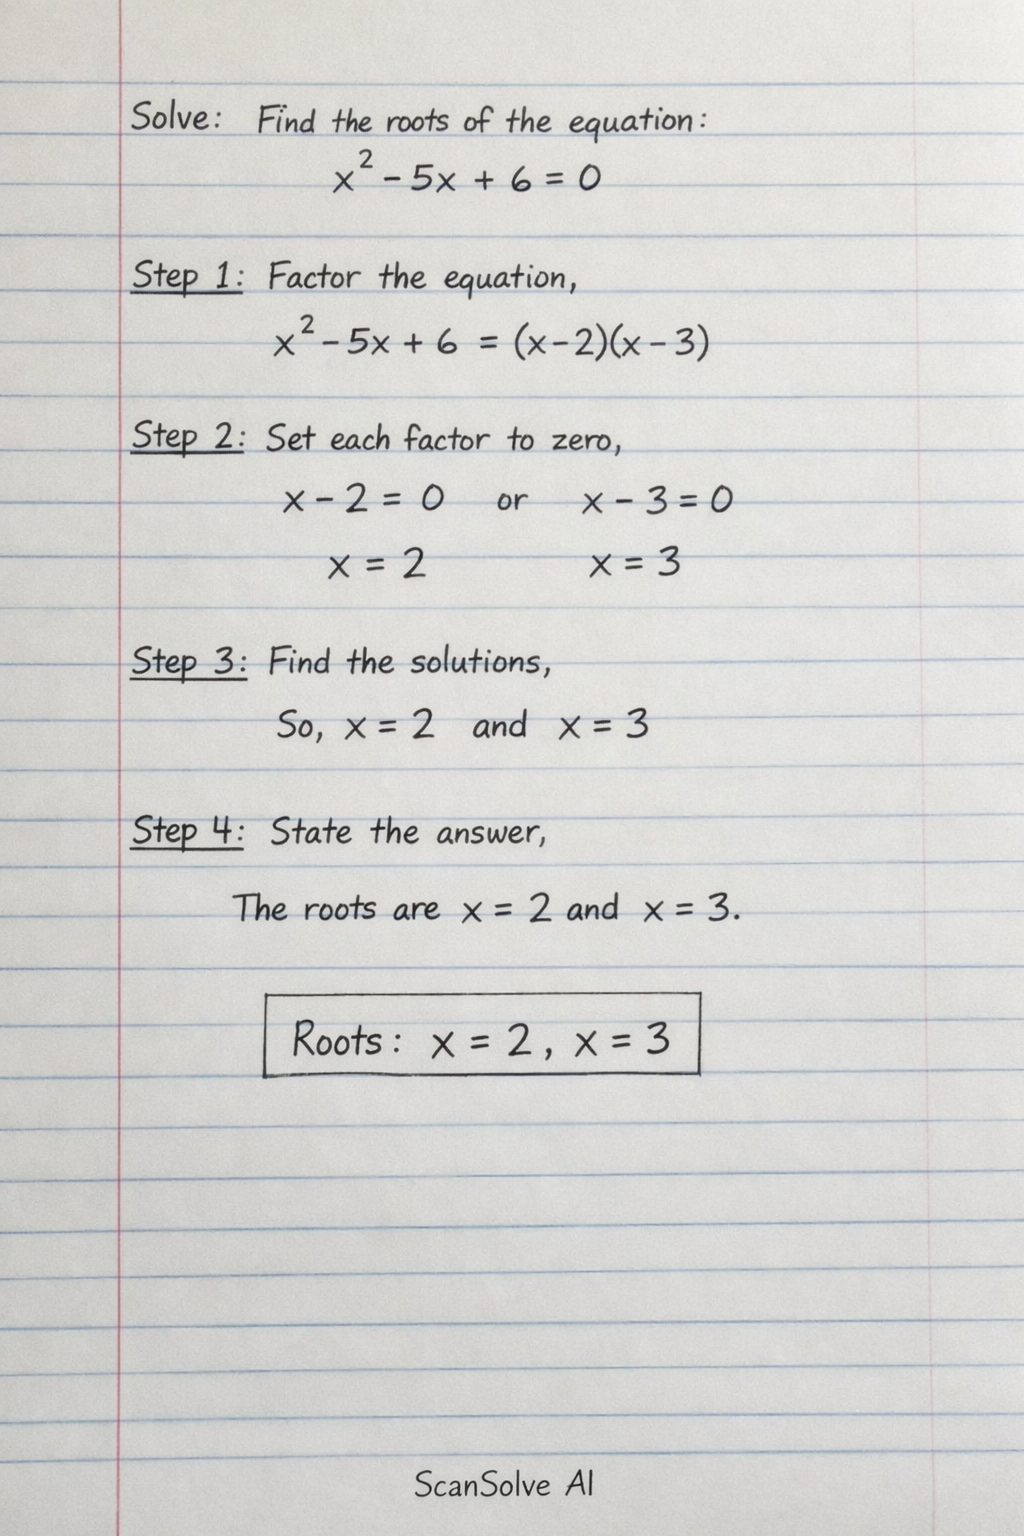 Solve: Find the roots of the equation:
x² - 5x + 6 = 0
Step 1: Factor the equation,
x² - 5x + 6 = (x-2)(x-3)
Step 2: Set each factor to zero,
x - 2 = 0 or x - 3 = 0
x = 2 x = 3
Step 3: Find the solutions,
So, x = 2 and x = 3
Step 4: State the answer,
The roots are x = 2 and x = 3.
Roots: x = 2, x = 3
ScanSolve AI